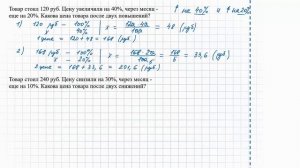 Товар стоил 120 руб. Цену увеличили на 40%, через месяц -
еще на 20%. Какова цена товара после двух повышений?
↑ на 40% и ↑ на 20%
1) 120 руб - 100%
x - 40%
x = = 48 (руб)
1 цена = 120 + 48 = 168 (руб)
2) 168 руб - 100%
x - 20%
x = = 33,6 (руб)
2 цена = 168 + 33,6 = 201,6 (руб)
Товар стоил 240 руб. Цену снизили на 30%, через месяц -
еще на 10%. Какова цена товара после двух снижений?